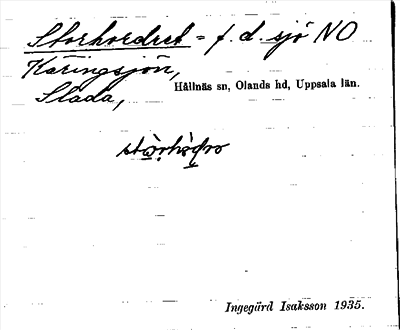 Storhordret = f. d. sjö NO
Käringsjön,
Slada,
Hållnäs sn, Olands hd, Uppsala län.
Ingegärd Isaksson 1935.